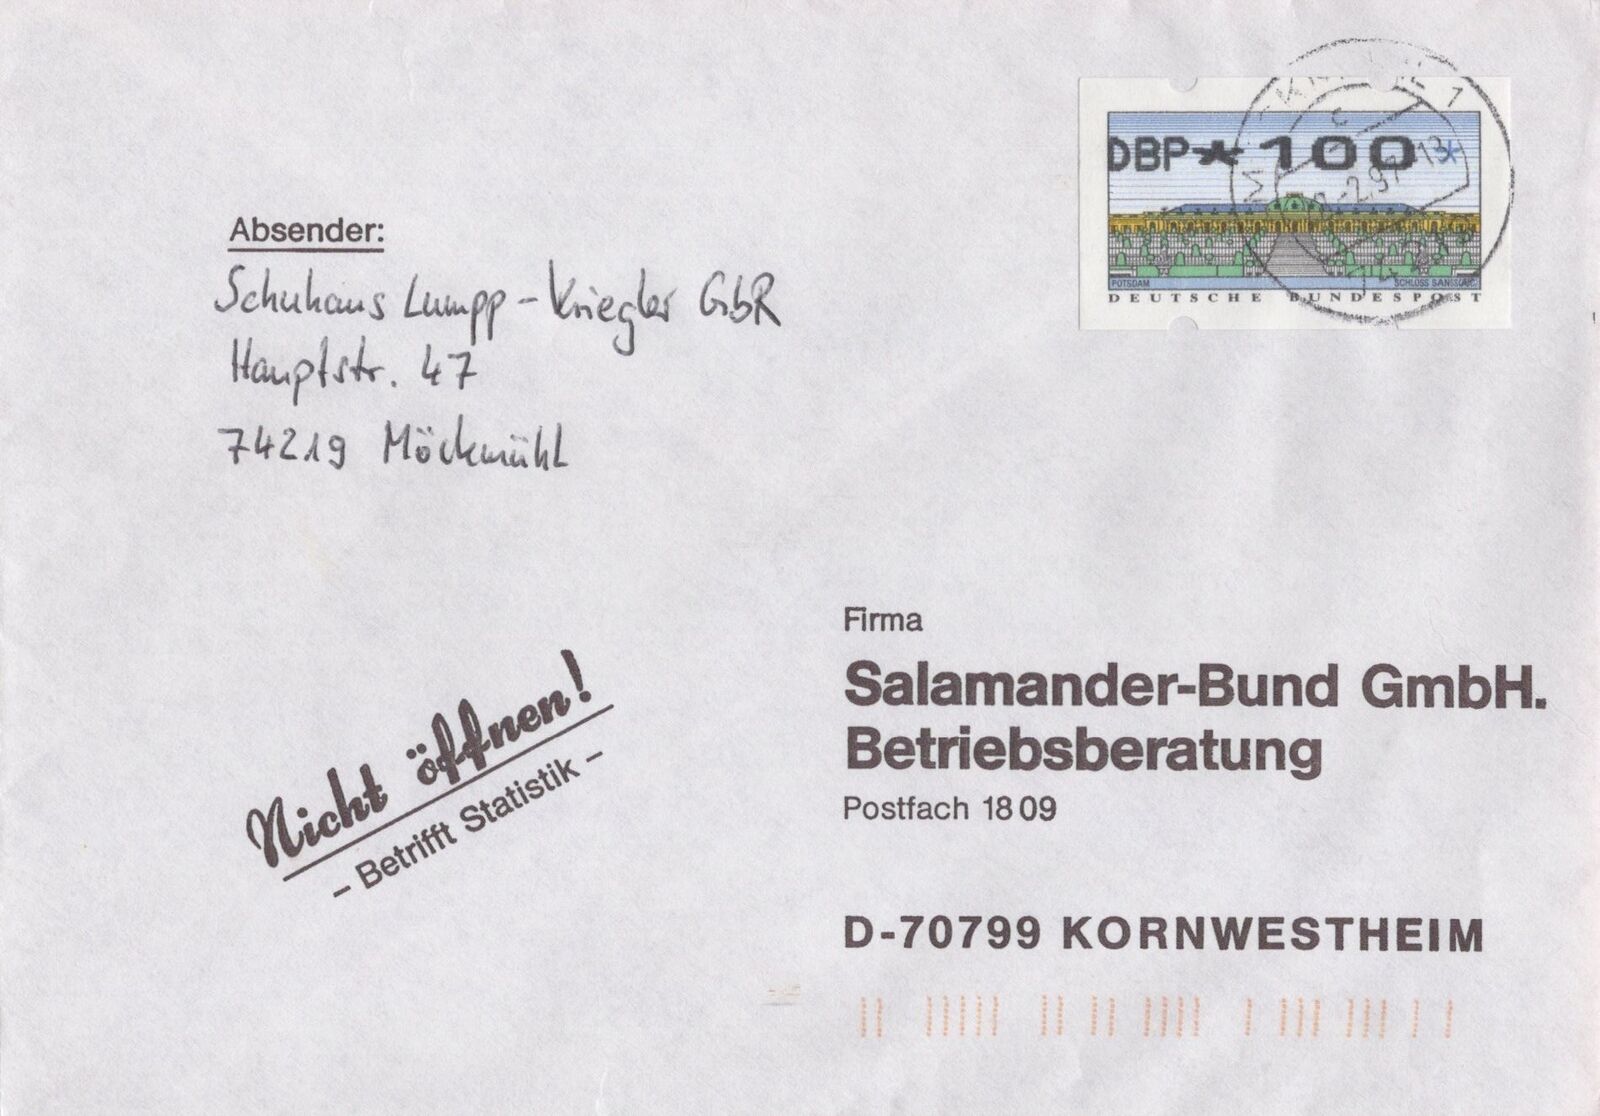 DBP*100*
POTSDAM SCHLOSS SANSSOUCI
DEUTSCHE BUNDESPOST
Absender:
Schuhaus Lumpp-Kriegler GbR
Hauptstr. 47
74219 Möckmühl
Firma
Salamander-Bund GmbH.
Betriebsberatung
Postfach 1809
D-70799 KORNWESTHEIM
Nicht öffnen!
- Betrifft Statistik -